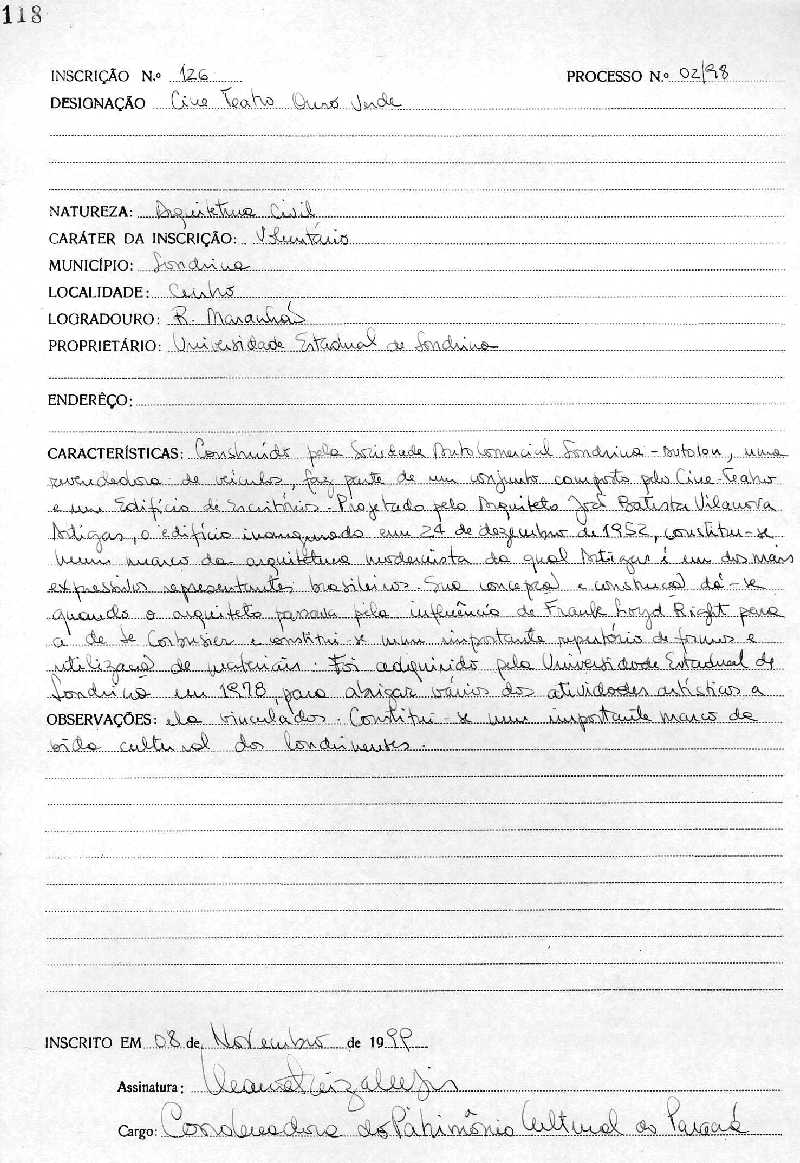 118
INSCRIÇÃO N.º 126 PROCESSO N.º 02/98
DESIGNAÇÃO Cine Teatro Ouro Verde
NATUREZA: Arquitetura Civil
CARÁTER DA INSCRIÇÃO: Voluntário
MUNICÍPIO: Londrina
LOCALIDADE: Centro
LOGRADOURO: R. Maranhão
PROPRIETÁRIO: Universidade Estadual de Londrina
ENDERÊÇO:
CARACTERÍSTICAS: Construído pela Sociedade Auto Comercial Londrina - Autolon, uma
revendedora de veículos, faz parte de um conjunto composto pelo Cine-Teatro
e um Edifício de Escritórios. Projetado pelo Arquiteto João Batista Vilanova
Artigas, o edifício inaugurado em 24 de dezembro de 1952, constitui-se
num marco da arquitetura modernista da qual Artigas é um dos mais
expressivos representantes brasileiros. Sua concepção e construção dá-se
quando o arquiteto passava pela influência de Frank Loyd Right para
a de Le Corbusier e constitui-se num importante repertório de formas e
utilização de materiais. Foi adquirido pela Universidade Estadual de
Londrina em 1978, para abrigar várias das atividades artísticas a
OBSERVAÇÕES: ela vinculados. Constitui-se num importante marco da
vida cultural dos londrinenses.
INSCRITO EM 08 de Novembro de 1999
Assinatura:
Cargo: Coordenadora do Patrimônio Cultural do Paraná